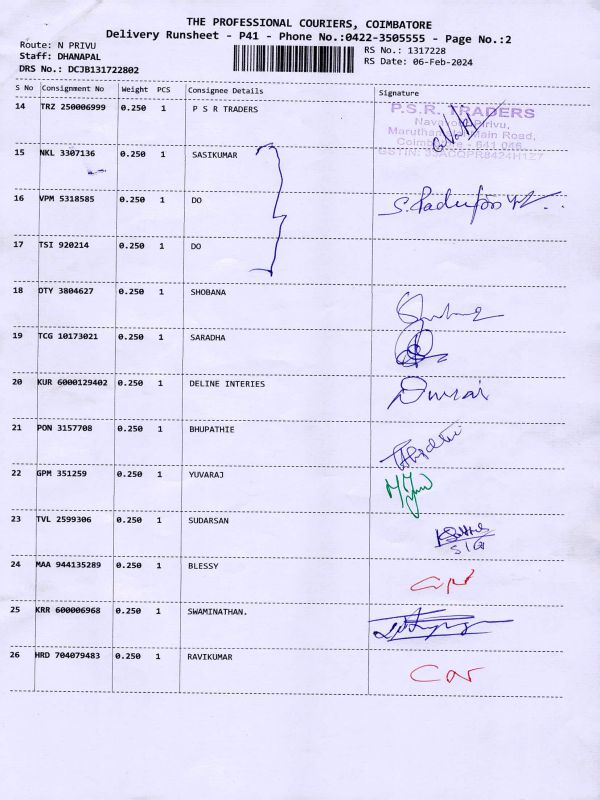 THE PROFESSIONAL COURIERS, COIMBATORE
Delivery Runsheet - P41 - Phone No.:0422-3505555 - Page No.:2
Route: N PRIVU RS No.: 1317228
Staff: DHANAPAL RS Date: 06-Feb-2024
DRS No.: DCJB131722802
S No Consignment No Weight PCS Consignee Details Signature
14 TRZ 250006999 0.250 1 P S R TRADERS
P.S.R. TRADERS
Main Road,
15 NKL 3307136 0.250 1 SASIKUMAR
16 VPM 5318585 0.250 1 DO
17 TSI 920214 0.250 1 DO
18 DTY 3804627 0.250 1 SHOBANA
19 TCG 10173021 0.250 1 SARADHA
20 KUR 6000129402 0.250 1 DELINE INTERIES
Durai
21 PON 3157708 0.250 1 BHUPATHIE
22 GPM 351259 0.250 1 YUVARAJ
23 TVL 2599306 0.250 1 SUDARSAN
24 MAA 944135289 0.250 1 BLESSY
25 KRR 600006968 0.250 1 SWAMINATHAN.
26 HRD 704079483 0.250 1 RAVIKUMAR